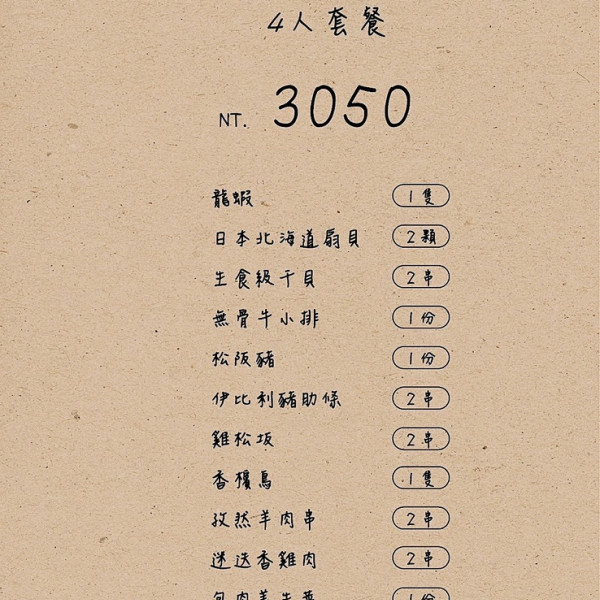 4人套餐
NT. 3050
龍蝦 1隻
日本北海道扇貝 2顆
生食級干貝 2串
無骨牛小排 1份
松阪豬 1份
伊比利豬肋條 2串
雞松坂 2串
香檳鳥 1隻
孜然羊肉串 2串
迷迭香雞肉 2串
包肉美生菜 1份